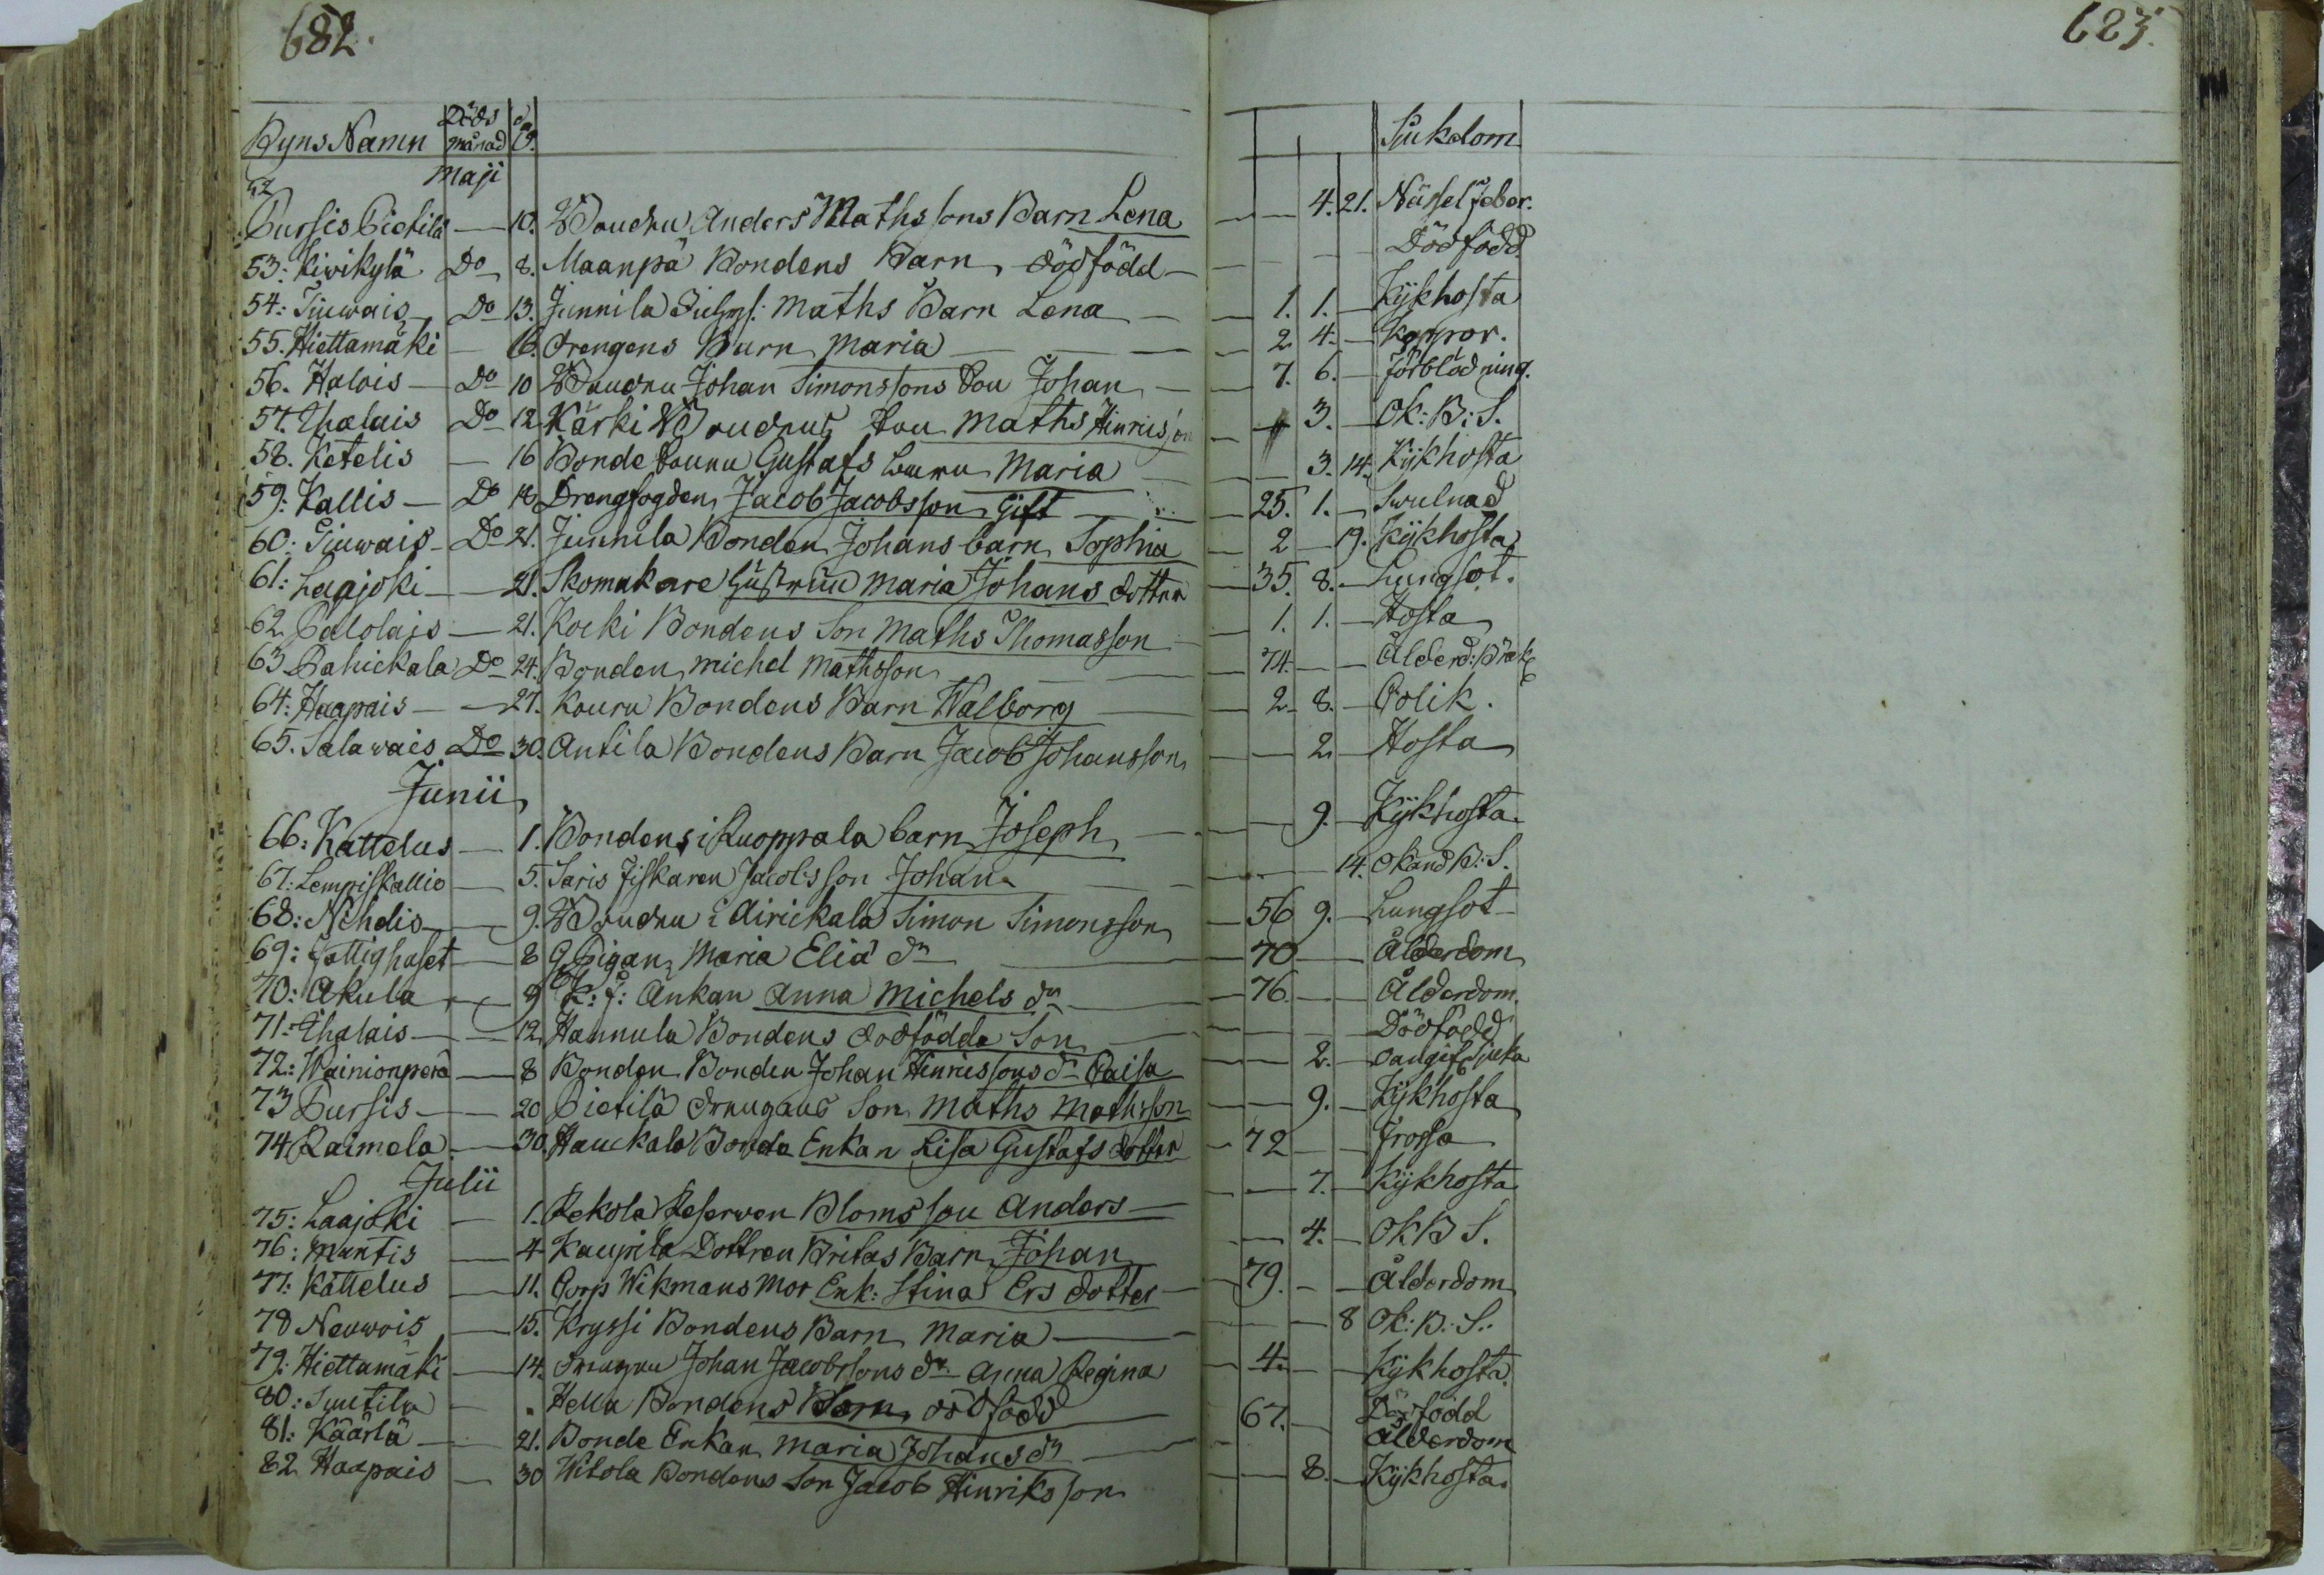 682. 683.
Byns Namn Döds månad d. Sjukdom
Maji
52 Pursis Pietilä — 10. Anders Mathssons Barn Lena — — 4. 21. Nässelfeber.
53: Kivikylä Do 8. Maanpä Bondens Barn dödfödd — Dödfödd.
54: Tjuwais Do 13. Junnila Maths Barn Lena — 1. 1. — Kjkhosta
55. Hiettamäki — 16. drengens Barn Maria — 2 4. — Koppor.
56. Halois — Do 10 Johan Simonssons Son Johan — 7. 6. — förblödning.
57. Ihalais Do 12 Kärki Son Maths Hinricsson — 3. — Ok: B: S.
58. Ketelis — 16 Bonde Gustafs Maria — 3. 14. Kjkhosta
59: Kallis — Do 18. Drengfogden Jacob Jacobsson Gift — 25. 1. — Swulnad
60: Tjuwais — Do 21. Junnila Bonden Johans barn Sophia — 2 — 19. Kjkhosta
61: Laajoki — 21. Skomakare Hustrun Maria Johans dotter — 35. 8. — Lungsot.
62 Palolais — 21. Koeki Bondens Son Maths Thomasson — 1. 1. — Hosta
63 Pahickala Do 24. Bonden Michel Mathsson — 74. — — Ålderd: Bräck
64: Haapais — 27. Kouru Bondens Barn Walborg — 2. 8. — Colik.
65. Salawais Do 30. Antila Bondens Barn Jacob Johansson — — 2. Hosta
Junii
66: Kattelus — 1. Bondens i Ruoppala barn Joseph — — 9. — Kjkhosta.
67: Lempiskallio — 5. Saris Fiskaren Jacobs Son Johan — 14. Okänd B: S.
68: Nihdis — 9. i Airickala Simon Simonsson — 56 9. — Lungsot
69: Fattighuset — 8 G Pigan Maria Eliæ dr — 70 — Ålderdom
70: Akula — 9 K: f: Ankan Anna Michels dr — 76. — — Ålderdom.
71: Ihalais — 12 Hannula Bondens dödfödda Son — Dödfödd
72: Wainionperä — 8 Bonden Bonden Johan Hinricssons dr Caisa — — 2. — oangif. Sjuka
73 Pursis — 20 Pietilä drengens Son Maths Mathsson — — 9. — Kjkhosta
74 Raimela — 30. Hauckala Bonde Enkan Lisa Gustafs dotter — 72 — — Frossa
Julii
75: Laajoki — 1. Rekola Reserven Bloms son Anders — — 7. — Kjkhosta
76: Muntis — 4 Kaupila Dottren Britas Barn Johan — 4. — Ok B S.
77: Kattelus — 11. Corp Wikmans Mor Enk: Stina Ers dotter — 79. — — Ålderdom
78 Neuwois — 15. Kryssi Bondens Barn Maria — — 8 Ok: B: S.
79: Hiettamäki — 14. drengen Johan Jacobssons dr Anna Regina — 4. — — Kjkhosta.
80: Suutila — Hellu Bondens Barn dödfödd Dödfödd
81: Käärlä — 21. Bonde Enkan Maria Johans dr — 67. — Ålderdom
82 Haapais — 30 Witola Bondens Son Jacob Hinriksson — — 8. — Kjkhosta.